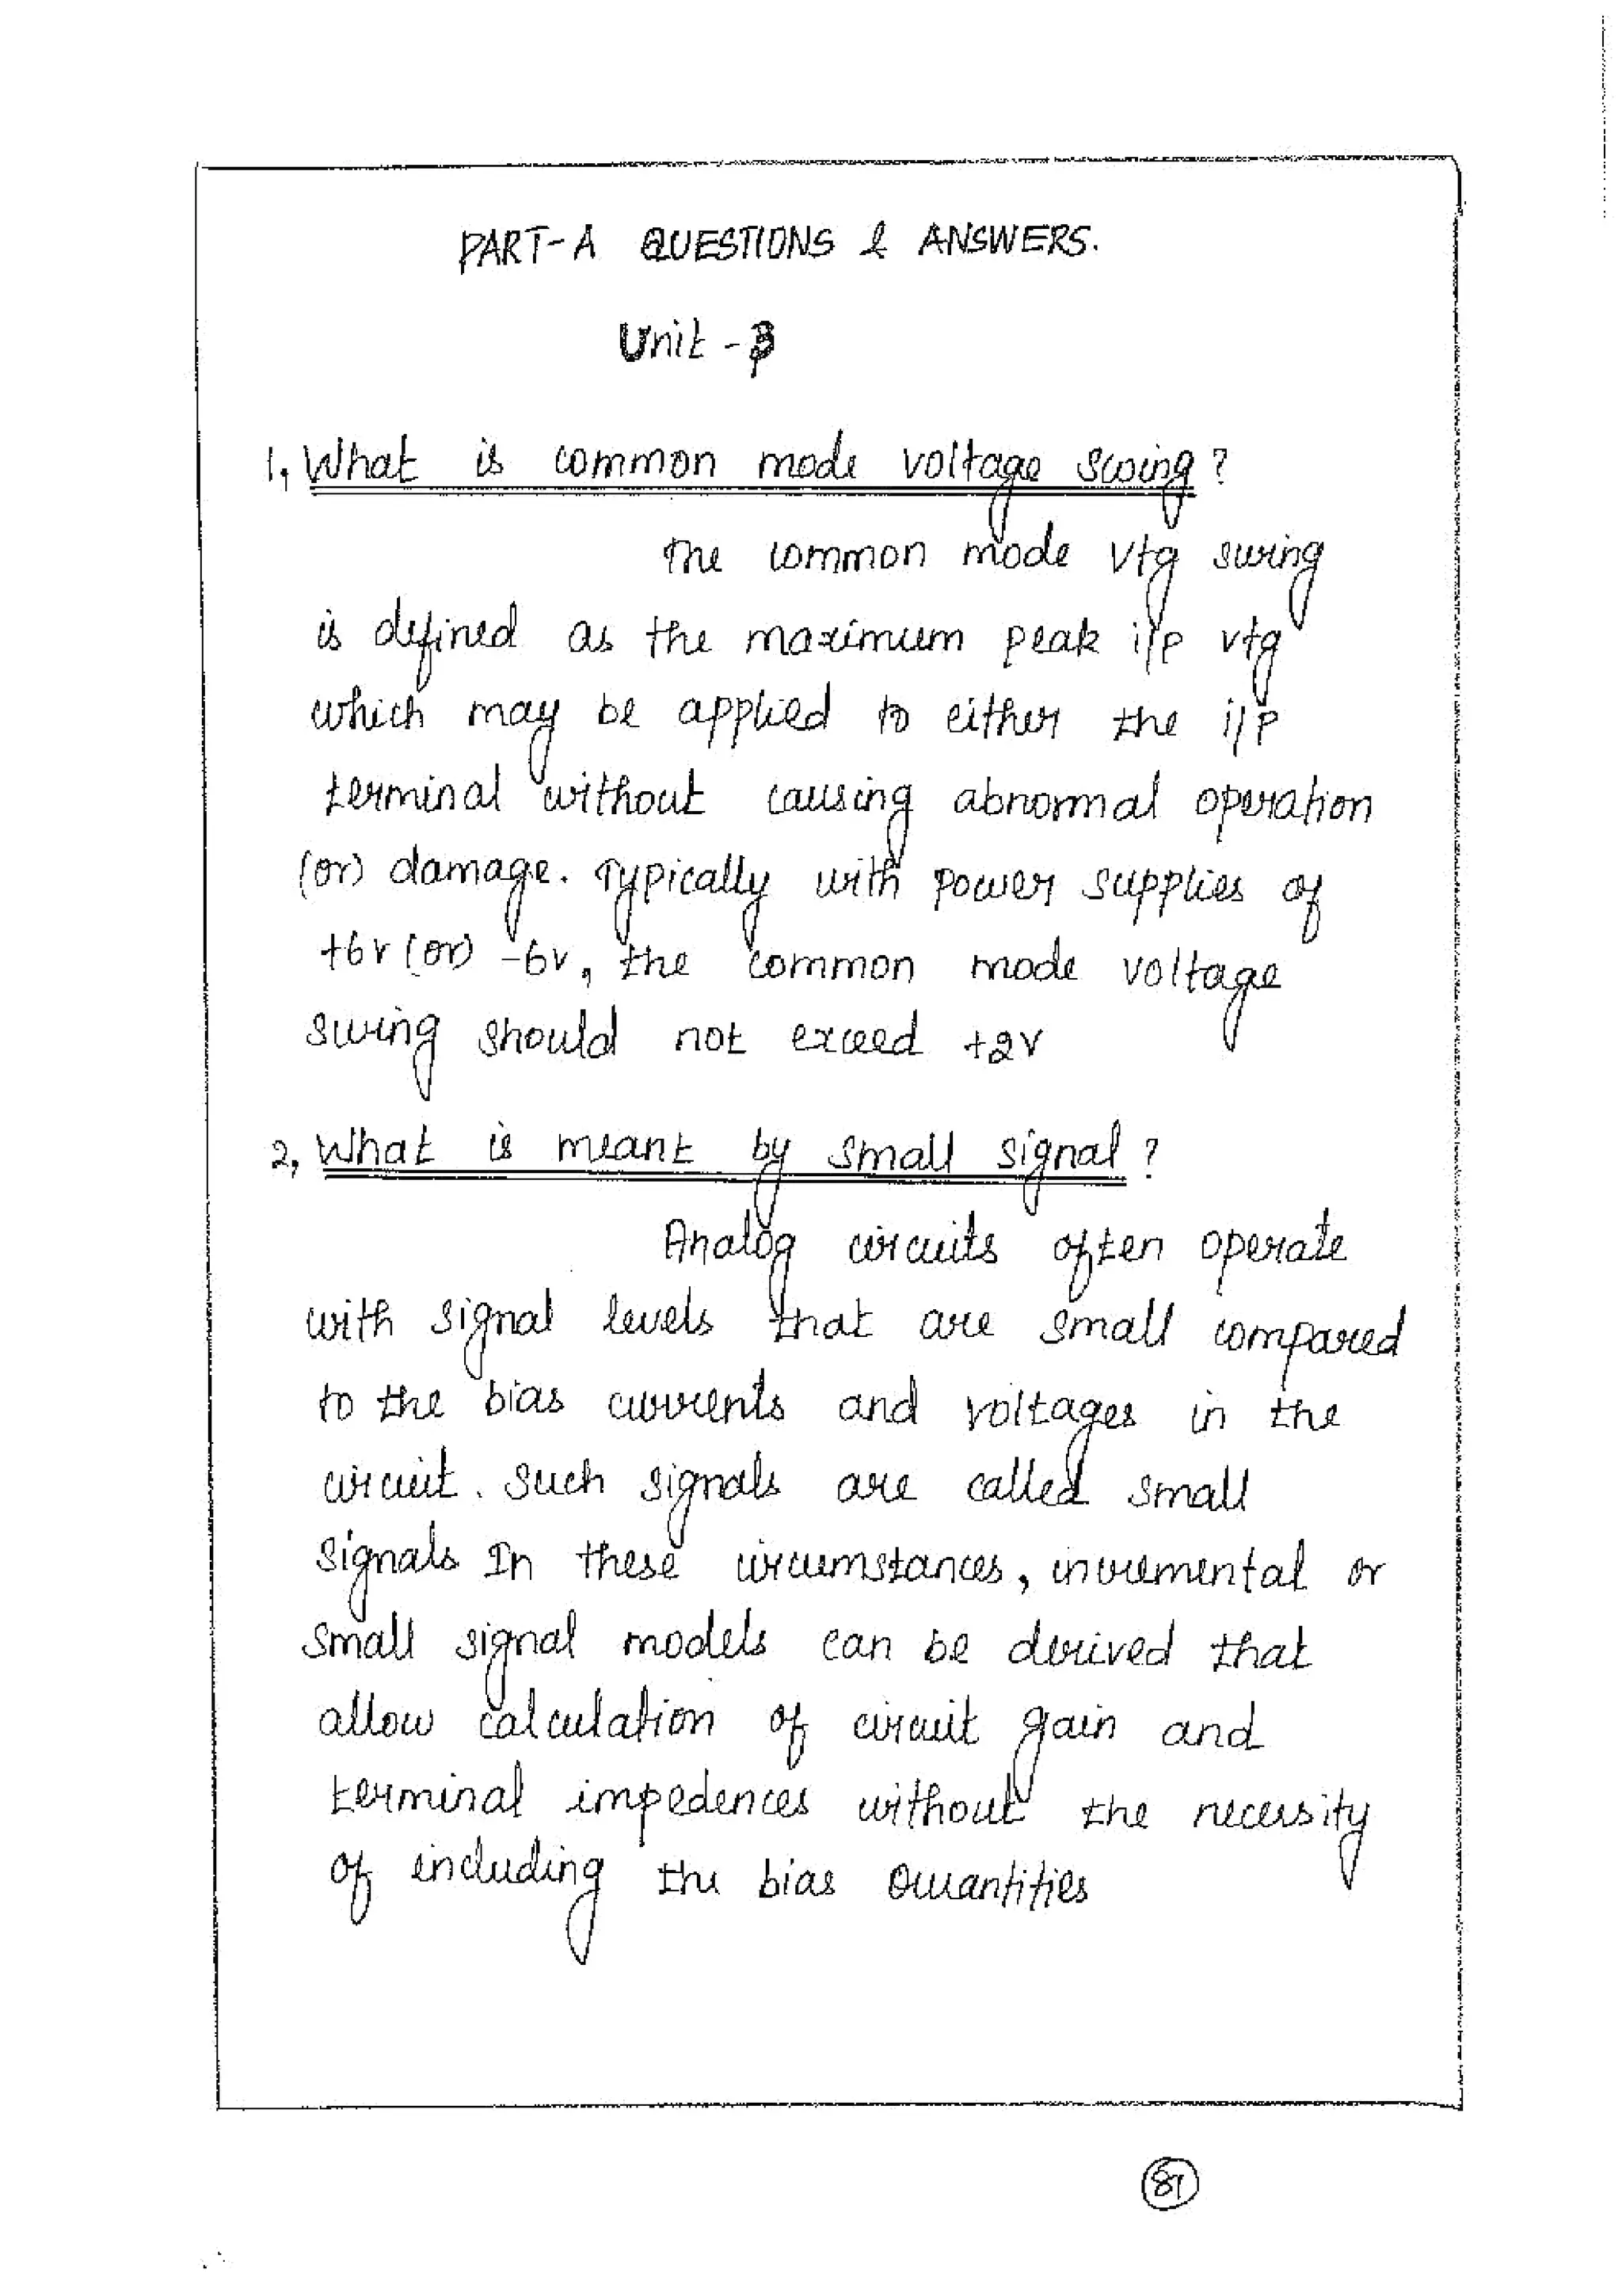 PART-A QUESTIONS & ANSWERS.
Unit - 3
1, What is common mode voltage swing ?
The common mode vtg swing
is defined as the maximum peak i/p vtg
which may be applied to either the i/p
terminal without causing abnormal operation
(or) damage. Typically with power supplies of
+6v (or) -6v, the common mode voltage
swing should not exceed +2v
2, What is meant by small signal ?
Analog circuits often operate
with signal levels that are small compared
to the bias currents and voltages in the
circuit. Such signals are called small
signals In these circumstances, incremental or
small signal models can be derived that
allow calculation of circuit gain and
terminal impedences without the necessity
of including the bias Quantities